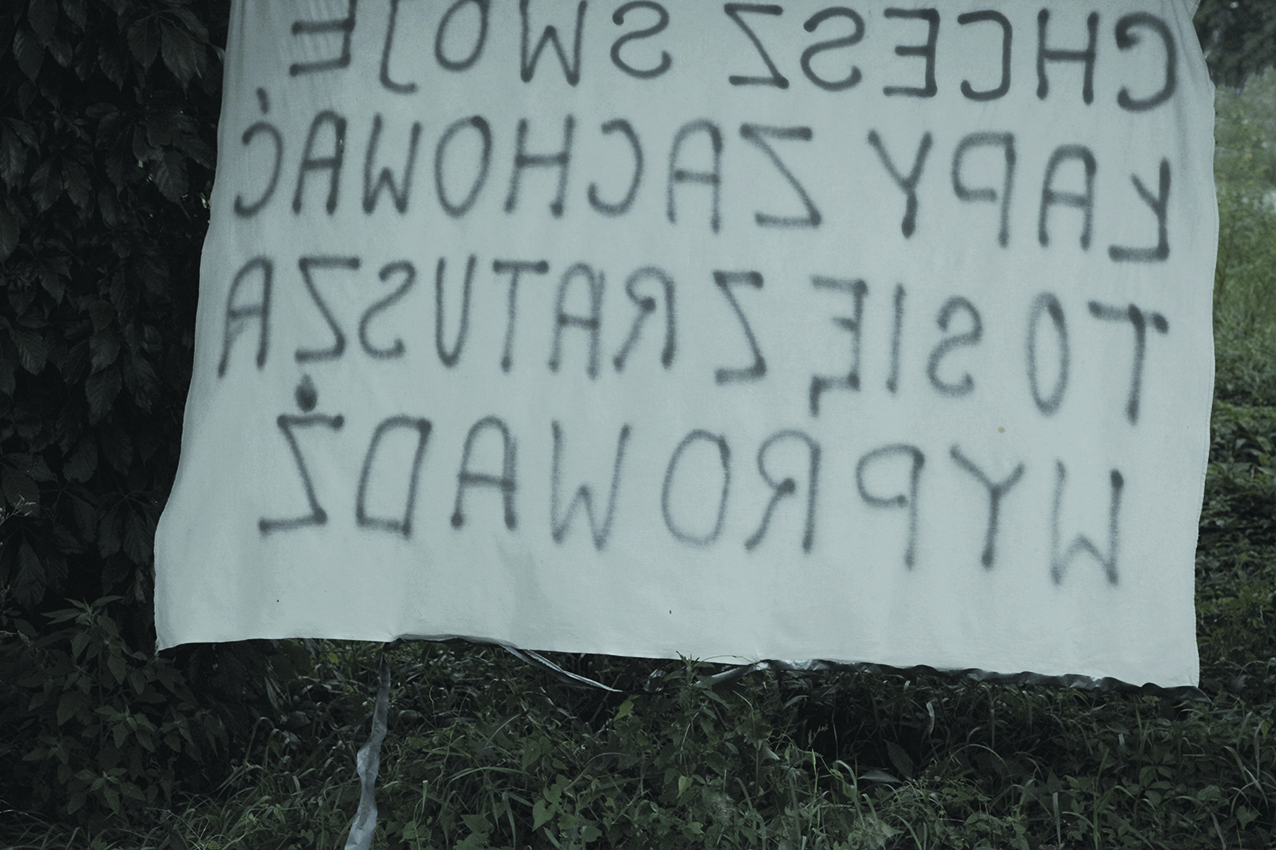 CHCESZ SWOJE
ŁAPY ZACHOWAĆ
TO SIĘ Z RATUSZA
WYPROWADŹ